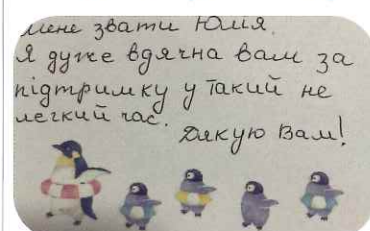 мене звати Юлія.
Я дуже вдячна вам за
підтримку у такий не
легкий час.
Дякую Вам!